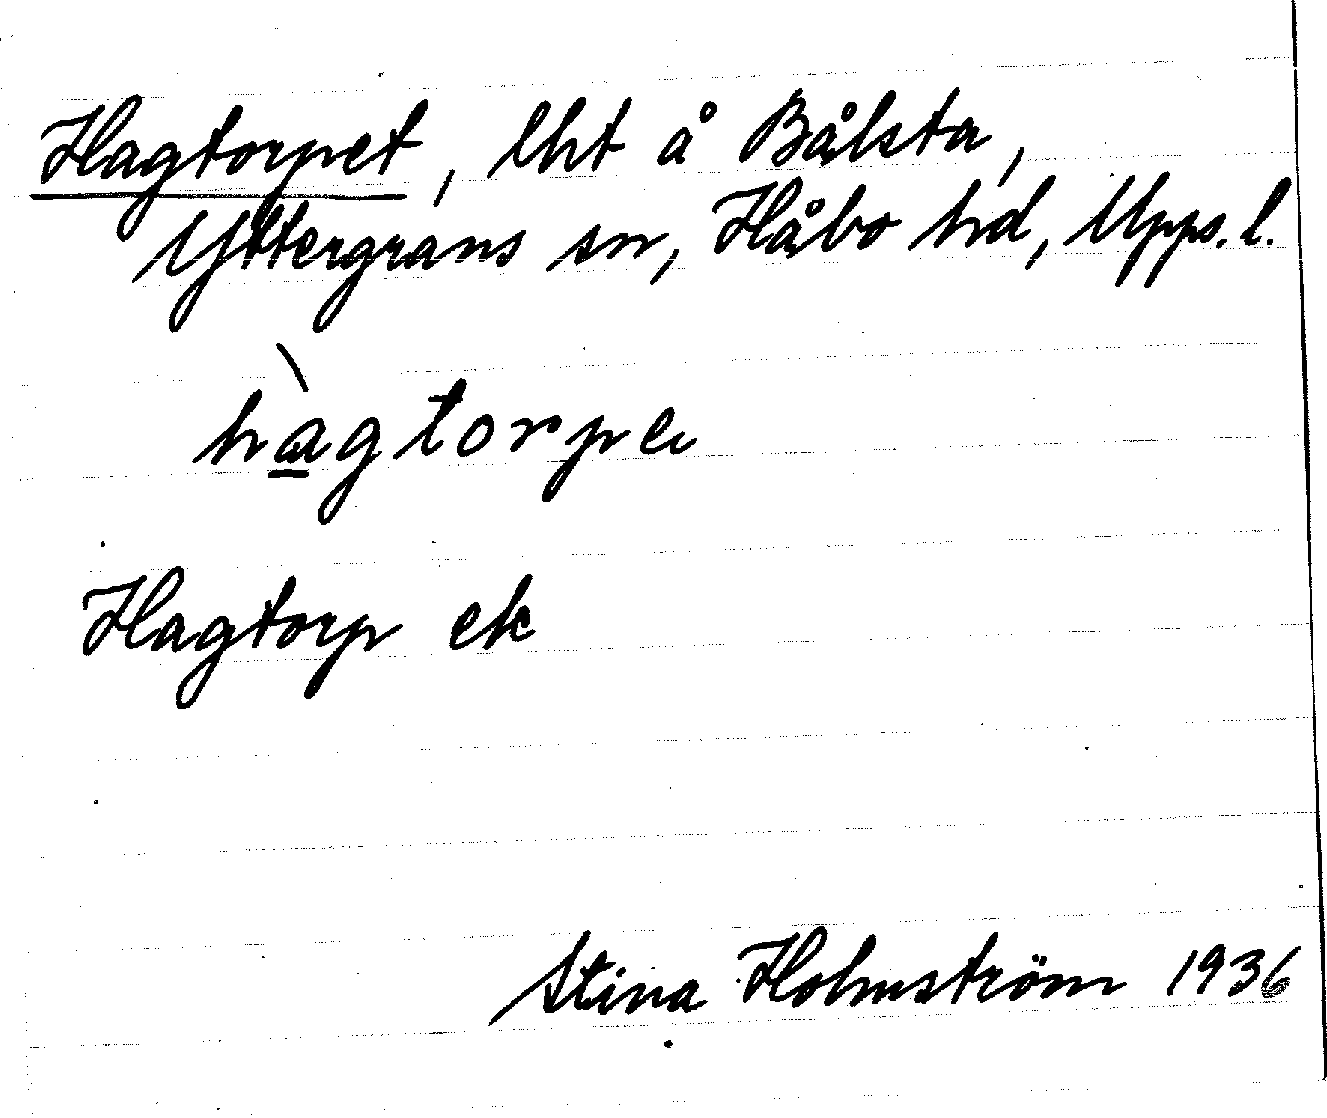 Hagtorpet, lht å Bålsta,
Yttergrans sn, Håbo hd, Upps. l.
hàgtorpe
Hagtorp ek
Stina Holmström 1936